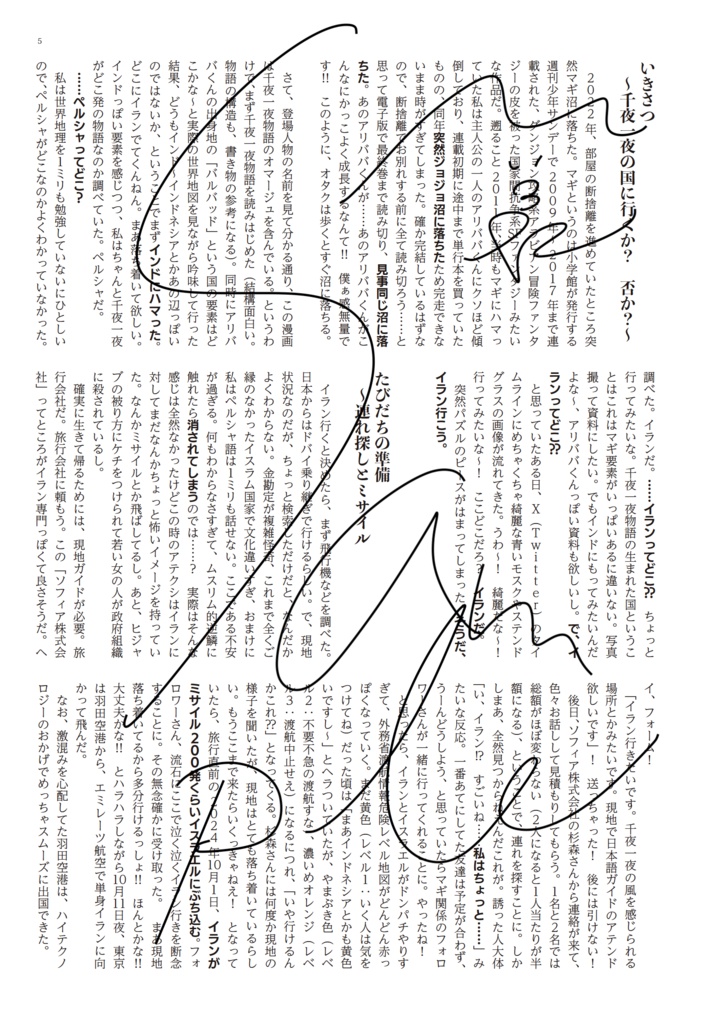 5
いきさつ
~千夜一夜の国に行くか? 否か?~
2022年、部屋の断捨離を進めていたところ突
然マギ沼に落ちた。マギというのは小学館が発行する
週刊少年サンデーで2009年~2017年まで連
載された、ダンジョン攻略系アラビアン冒険ファンタ
ジーの皮を被った国家間抗争系SFファンタジーみたい
な作品だ。遡ること2011年、当時もマギにハマっ
ていた私は主人公の一人のアリババくんにクソほど傾
倒しており、連載初期に途中まで単行本を買っていた
ものの、同年突然ジョジョ沼に落ちたため完走できな
いまま時がすぎてしまった。確か完結しているはずな
ので、断捨離でお別れする前に全て読み切ろう……と
思って電子版で最終巻まで読み切り、見事同じ沼に落
ちた。あのアリババくんが……あのアリババくんがこ
んなにかっこよく成長するなんて!! 僕ぁ感無量で
す!! このように、オタクは歩くとすぐ沼に落ちる。
さて、登場人物の名前を見て分かる通り、この漫画
は千夜一夜物語のオマージュを含んでいる。というわ
けで、まず千夜一夜物語を読みはじめた(結構面白い。
物語の構造も、書き物の参考になる)。同時にアリバ
バくんの出身地の「バルバッド」という国の要素はど
こかな~と実際の世界地図を見ながら吟味して行った
結果、どうもインド~インドネシアとかあの辺っぽい
のではないか、ということでまずインドにハマった。
どこにイランでてくんねん。まあ落ち着いて欲しい。
インドっぽい要素を感じつつ、私はちゃんと千夜一夜
がどこ発の物語なのか調べていた。ペルシャだ。
……ペルシャってどこ?
私は世界地理を1ミリも勉強していないにひとしい
ので、ペルシャがどこなのかよくわかっていなかった。
調べた。イランだ。……イランってどこ?? ちょっと
行ってみたいな。千夜一夜物語の生まれた国というこ
とはこれはマギ要素がいっぱいあるに違いない。写真
撮って資料にしたい。でもインドにもってみたいんだ
よな~、アリババくんっぽい資料も欲しいし。で、イ
ランってどこ??
と思っていたある日、X(Twitter)のタイ
ムラインにめちゃくちゃ綺麗な青いモスクやステンド
グラスの画像が流れてきた。うわー! 綺麗だな~!
行ってみたいな~! ここどこだろ? イランだ。
突然パズルのピースがはまってしまった。そうだ、
イラン行こう。
たびだちの準備
~連れ探しとミサイル
イラン行くと決めたら、まず飛行機などを調べた。
日本からはドバイ乗り継ぎで行けるらしい。で、現地
状況なのだが、ちょっと検索しただけだと、なんだか
よくわからない。金勘定が複雑怪奇、これまで全くご
縁のなかったイスラム国家で文化違いすぎ、おまけに
私はペルシャ語は1ミリも話せない。ここである不安
が過ぎる。何もわからなさすぎて、ムスリム的逆鱗に
触れたら消されてしまうのでは……? 実際はそんな
感じは全然なかったけどこの時のアテクシはイランに
対してまだなんかちょっと怖いイメージを持ってい
た。なんかミサイルとか飛ばしてるし。あと、ヒジャ
ブの被り方にケチをつけられて若い女の人が政府組織
に殺されているし。
確実に生きて帰るためには、現地ガイドが必要。旅
行会社だ。旅行会社に頼もう。この「ソフィア株式会
社」ってところがイラン専門っぽくて良さそうだ。へ
イ、フォーム!
「イラン行きたいです。千夜一夜の風を感じられる
場所とかみたいです。現地で日本語ガイドのアテンド
欲しいです」! 送っちゃった! 後には引けない!
後日、ソフィア株式会社の杉森さんから連絡が来て、
色々お話しして見積もりしてもらう。1名と2名では
総額がほぼ変わらない(2人になると1人当たりが半
額になる)、ということで、連れを探すことに。しか
しまあ、全然見つからねえんだこれが。誘った人大体
「い、イラン!? すごいね……私はちょっと……」み
たいな反応。一番あてにしてた友達は予定が合わず、
うーんどうしよう、と思っていたらマギ関係のフォロ
ワーさんが一緒に行ってくれることに。やったね!
と思ったら、イランとイスラエルがドンパチやりす
ぎて、外務省渡航情報危険レベル地図がどんどん赤っ
ぽくなっていく。まだ黄色(レベル1:いく人は気を
つけてね)だった頃は「まあインドネシアとかも黄色
いですし~」とヘラついていたが、やまぶき色(レベ
ル2:不要不急の渡航すな)、濃いめオレンジ(レベ
ル3:渡航中止せえ)になるにつれ、「いや行けるん
かこれ??」となってくる。杉森さんには何度か現地の
様子を聞いたが、現地はとても落ち着いているらし
い。もうここまで来たらいくっきゃねえ! となって
いたら、旅行直前の2024年10月1日、イランが
ミサイル200発くらいイスラエルにぶち込む。フォ
ロワーさん、流石にここで泣く泣くイラン行きを断念
することに。その無念確かに受け取った。まあ現地
落ち着いてるから多分行けるっしょ!! ほんとかな!!
大丈夫かな!! とハラハラしながら10月11日夜、東京
は羽田空港から、エミレーツ航空で単身イランに向
かって飛んだ。
なお、激混みを心配してた羽田空港は、ハイテクノ
ロジーのおかげでめっちゃスムーズに出国できた。